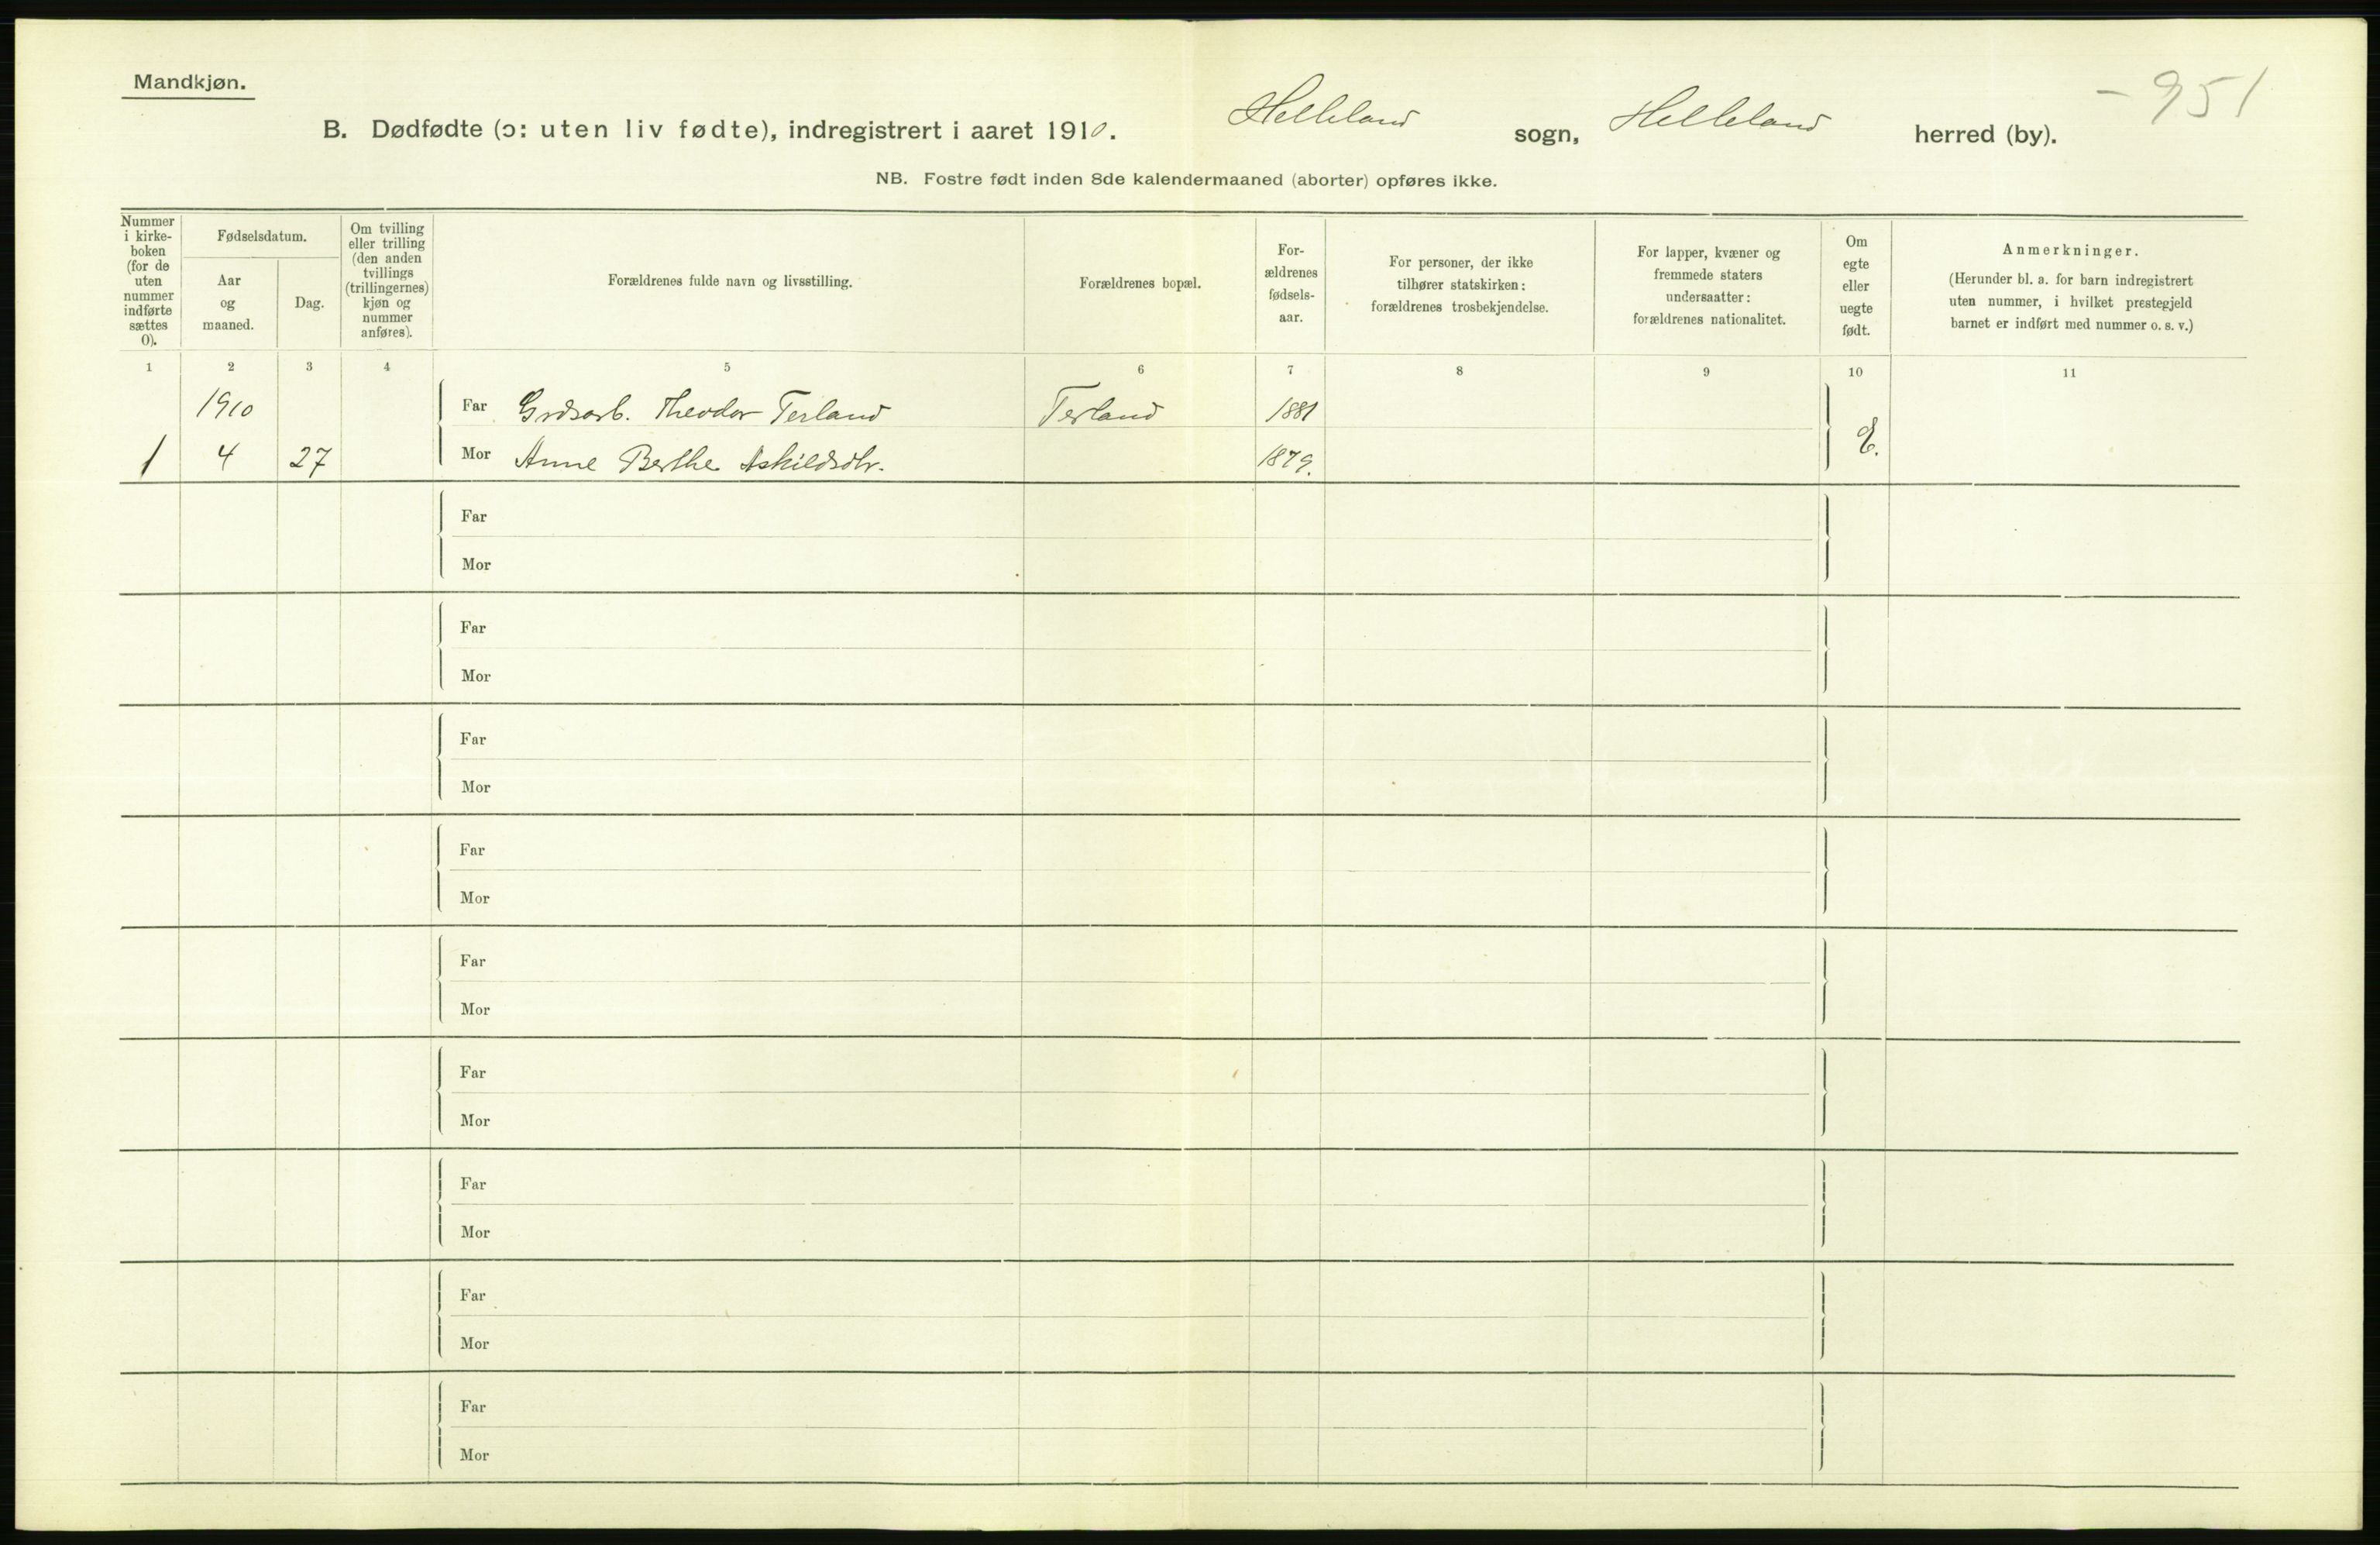 Mandkjøn.
- 951
B. Dødfødte (ɔ: uten liv fødte), indregistrert i aaret 1910. Helleland sogn, Helleland herred (by).
NB. Fostre født inden 8de kalendermaaned (aborter) opføres ikke.
Nummer
i kirke-
boken
(for de
uten
nummer
indførte
sættes
0).
Fødselsdatum.
Aar
og
maaned.
Dag.
Om tvilling
eller trilling
(den anden
tvillings
(trillingernes)
kjøn og
nummer
anføres).
Forældrenes fulde navn og livsstilling.
Forældrenes bopæl.
For-
ældrenes
fødsels-
aar.
For personer, der ikke
tilhører statskirken:
forældrenes trosbekjendelse.
For lapper, kvæner og
fremmede staters
undersaatter:
forældrenes nationalitet.
Om
egte
eller
uegte
født.
Anmerkninger.
(Herunder bl. a. for barn indregistrert
uten nummer, i hvilket prestegjeld
barnet er indført med nummer o. s. v.)
1 2 3 4 5 6 7 8 9 10 11
1910 Far Grdsarb. Theodor Terland Terland 1881
1 4 27 Mor Anne Berthe Askildsdtr. 1879. E.
Far
Mor
Far
Mor
Far
Mor
Far
Mor
Far
Mor
Far
Mor
Far
Mor
Far
Mor
Far
Mor